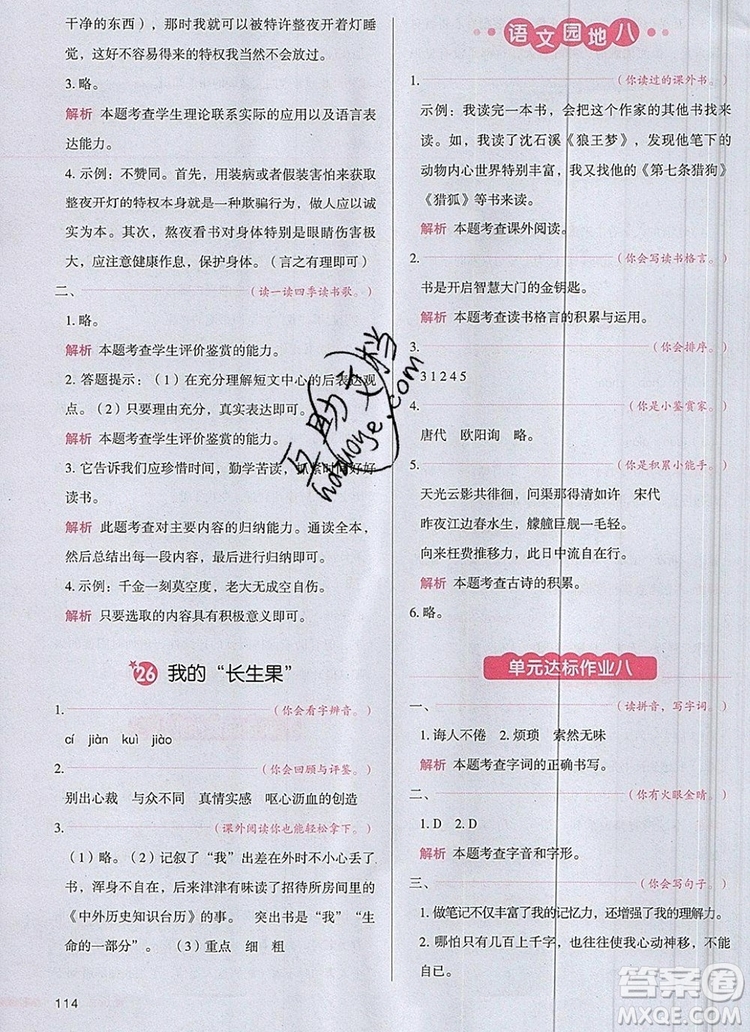 干净的东西），那时我可以被特许整夜开着灯睡
觉，这么不容易得来的特权可惜无书可看。
3. 略。
解析 本题考查学生理论联系实际的应用以及语言表
达能力。
4. 示例：不赞同。首先，用装病或者假装害怕来获取
整夜开灯的特权本身就是一种欺骗行为，做人应以
诚实为本。其次，熬夜看书对身体特别是眼睛伤害极
大。应注意健康作息，保护身体。（言之有理即可）
二、（读一读四季读书歌。）
1. 略。
解析 本题考查学生评价鉴赏的能力。
2. 答题提示：（1）在充分理解短文中心的后表达观
点。（2）只要理由充分，真实具体即可。
解析 本题考查学生评价鉴赏的能力。
3. 它告诉我们应珍惜时间，勤学苦读，抓紧时间好好
读书。
解析 此题考查对主要内容的归纳能力。通读全本，
然后总结出每一句话的含义，进行归纳即可。
4. 示例：千金一刻莫空度，老大无成空自伤。
解析 只要选取的内容具有积极意义即可。
26 我的“长生果”
1. （你会看字辨音。）
cí jiàn kuì jiào
2. （你会回顾与评鉴。）
别出心裁 与众不同 真情实感 呕心沥血的创造
3. （课外阅读你也能轻松拿下。）
（1）略。（2）记叙了“我”出差在外时不小心丢了
书，浑身不自在，后来津津有味读了招待所房间里的
《中外历史知识台历》的事。 突出书是“我”“生
命的一部分”。（3）重点 细 粗
114
语文园地八
1. （你读过的课外书。）
示例：我读完一本书，会把这个作家的其他书找来
读。如，我读了沈石溪《狼王梦》，发现他笔下的
动物内心世界特别丰富，我又找来他的《第七条猎狗》
《猎狐》等书来读。
解析 本题考查课外阅读。
2. （你会写读书格言。）
书是开启智慧大门的金钥匙。
解析 本题考查读书格言的积累与运用。
3. （你会排序。）
3 1 2 4 5
4. （你是小鉴赏家。）
唐代 欧阳询 略。
5. （你是积累小能手。）
天光云影共徘徊 问渠那得清如许 宋代
昨夜江边春水生，艨艟巨舰一毛轻。
向来枉费推移力，此日中流自在行。
解析 本题考查古诗的积累。
6. 略。
单元达标作业八
一、（读拼音，写字词。）
1. 诲人不倦 2. 烦琐 索然无味
解析 本题考查字词的正确书写。
二、（你有火眼金睛。）
1. D 2. D
解析 本题考查字音和字形。
三、（你会写句子。）
1. 做笔记不仅丰富了我的记忆力，还增强了我的理解力。
2. 哪怕只有几百上千字，也往往使我心动神移，不能
自已。
互助文档
hozuoye.com
答案圈
MXQE.COM